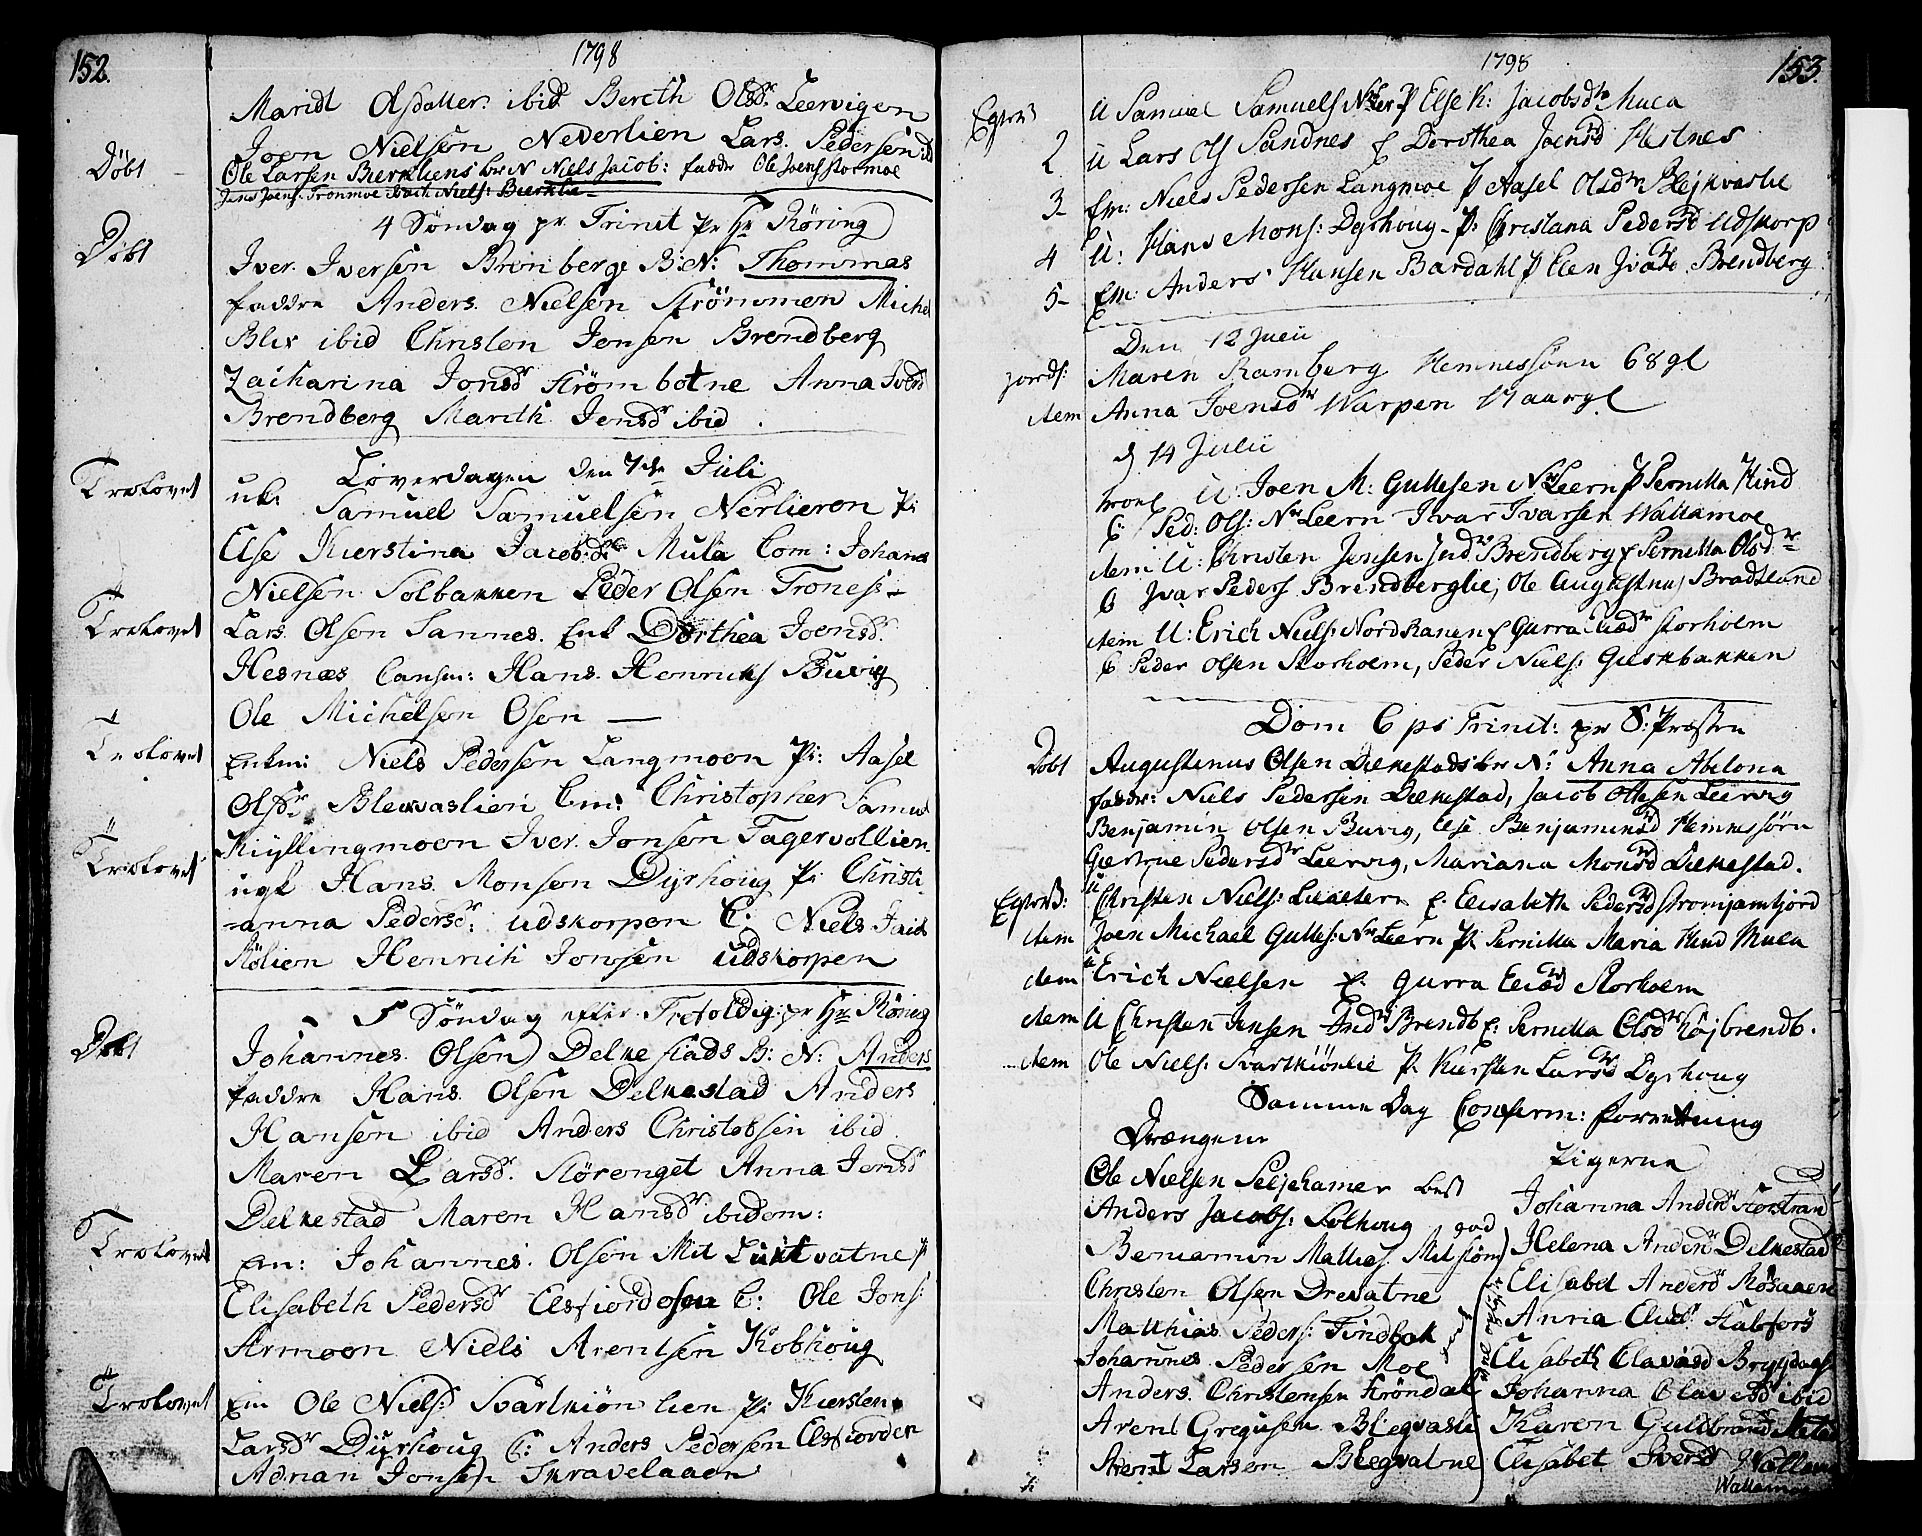 152.
1798
Maridt Olsdatter. ibid Bereth Olsdr. Leervigen
Joen Nielsen Nederlien Lars Pedersen
Døbt
Ole Larsen Bierkliens br N Niels Jacob: faddr Ole Joens Stormoe
Jens Joens: Tronmoe Niels: Bierklie
4 Söndag pr Trinit pr Hr Röring
Døbt
Iver. Iversen Brönberge B: N: Thommas
faddre Anders Nielsen Strömmen Michel
Blix ibid Christen Jensen Brendberg
Zacharina Jonsdr Strømbotne Anna Iversd
Brendberg Marith Jensdr ibid.
Løverdagen den 7de Juli
Trolovet
uk: Samuel Samuelsen Nerlieron P:
Else Kierstina Jacobsdr Mula Com: Johanes
Nielsen Solbakken Peder Olsen Trones
Trolovet
Lars Olsen Sannes. Enk Dorthea Joensdr.
Hesnæs Cansm: Hans Henricks Buvig
Ole Michelsen Osen
Trolovet
Enkm: Niels Pedersen Langmoen P: Aasel
Olsdr Blexvaslien Cm: Christopher Samuel
Kiyllingmoen Iver. Jonsen Fagervollien
Trolovet
ugk Hans Monsen Dyrhoug P: Christi-
anna Pedersdr: udskorpen C. Niels
Stølien Henrich Jonsen udskorpen
5 Söndag efter Trefoldig: pr Hr Röring
Døbt
Johannes Olsen Delkestads B: N: Anders
faddre Hans Olsen Delkestad Anders
Hansen ibid Anders Christofsen ibid
Maren Larsdr. Störenget Anna Jensdr
Delkestad Maren Hansdr ibidem:
Trolovet
Em: Johannes. Olsen Mit Luktvatne P
Elisabeth Pedersdr Elsfiordosen C: Ole Jons:
Armoen Niels Arentsen Kobhoug
Trolovet
Em Ole Niels: Svartkiönlien P: Kiersten
Larsdr Dyrhoug C: Anders Pedersen Elsfiorden
Adrian Jonsen Skravelaaen
1798
153.
U Samuel Samuels Nerlier P Else K: Jacobsdtr Mula
2 U Lars Ols Sandnes E Dorothea Joensd Hestnes
3 Em: Niels Pedersen Langmoe P Aasel Olsdtr Blejkvaslie
4 U: Hans Mons: Dyrhoug P: Christana Pedersd Udskorp
5 Em: Anders Hansen Bardahl P Elen Brendberg
Den 12 Julii
jords: Maren Ramberg Hemnessøen 68 gl
item Anna Joensdtr Warpen 14 aar gl
d 14 Julii
U: Joen M: Gullesen Nr Leern P Pernilla Hind
C: Ped: Ols: Nr Leern Ivar Ivarsen Wallamoe
item U: Christen Jensen Indr Brendberg E Pernilla Olsdtr
C Ivar Peders Brendberglie, Ole Augustinus Bradtland
item U: Erich Niels: Nordranen E Gurra Eliædtr Storholm
C Peder Olsen Storholm, Peder Niels: Guskbakken
Dom 6 ps Trinit: pr S: Præsten
Døbt Augustinus Olsen Delkestads br N: Anna Abelona
faddr: Niels Pedersen Delkestad, Jacob Ottesen Leervig
Benjamin Olsen Buvig, Else Benjaminsd Hemnessøen
Giertrue Pedersdtr Leervig, Mariana Monsd Delkestad.
Christen Niels: E. Elisabeth Pedersd
item Joen Michael Gulles: Nr Leern P. Pernilla Maria Hind Mula
item Erich Nielsen E. Gurra Eliæd Storholm
item U Christen Jensen Indr Brendb E: Pernilla Olsdtr Højbrendb.
item Ole Niels: Svartkiönlie P. Kiersten Larsd Dyrhoug
Samme Dag Conferm: forretning
Drængene
Ole Nielsen Seljehamer best
Anders Jacobs: Solhoug god
Beniamin Mathias. Mitstöm
Christen Olsen Drevatne
Matthias Peders: Tindbak
Johannes Pedersen Moe
Anders Christensen Kröndal
Arent Gregusen Blegvasli
Arent Larsen Blegvatne
Pigerne
Johanna Andersd
Helena Andersd Delkestad
Elisabet Andersd
Anna Eliæd Halsfors
Elisabeth Olavæd
Johanna Olavesd ibid
Karen Guldbrandsd
Elisabet Iversd Wallem